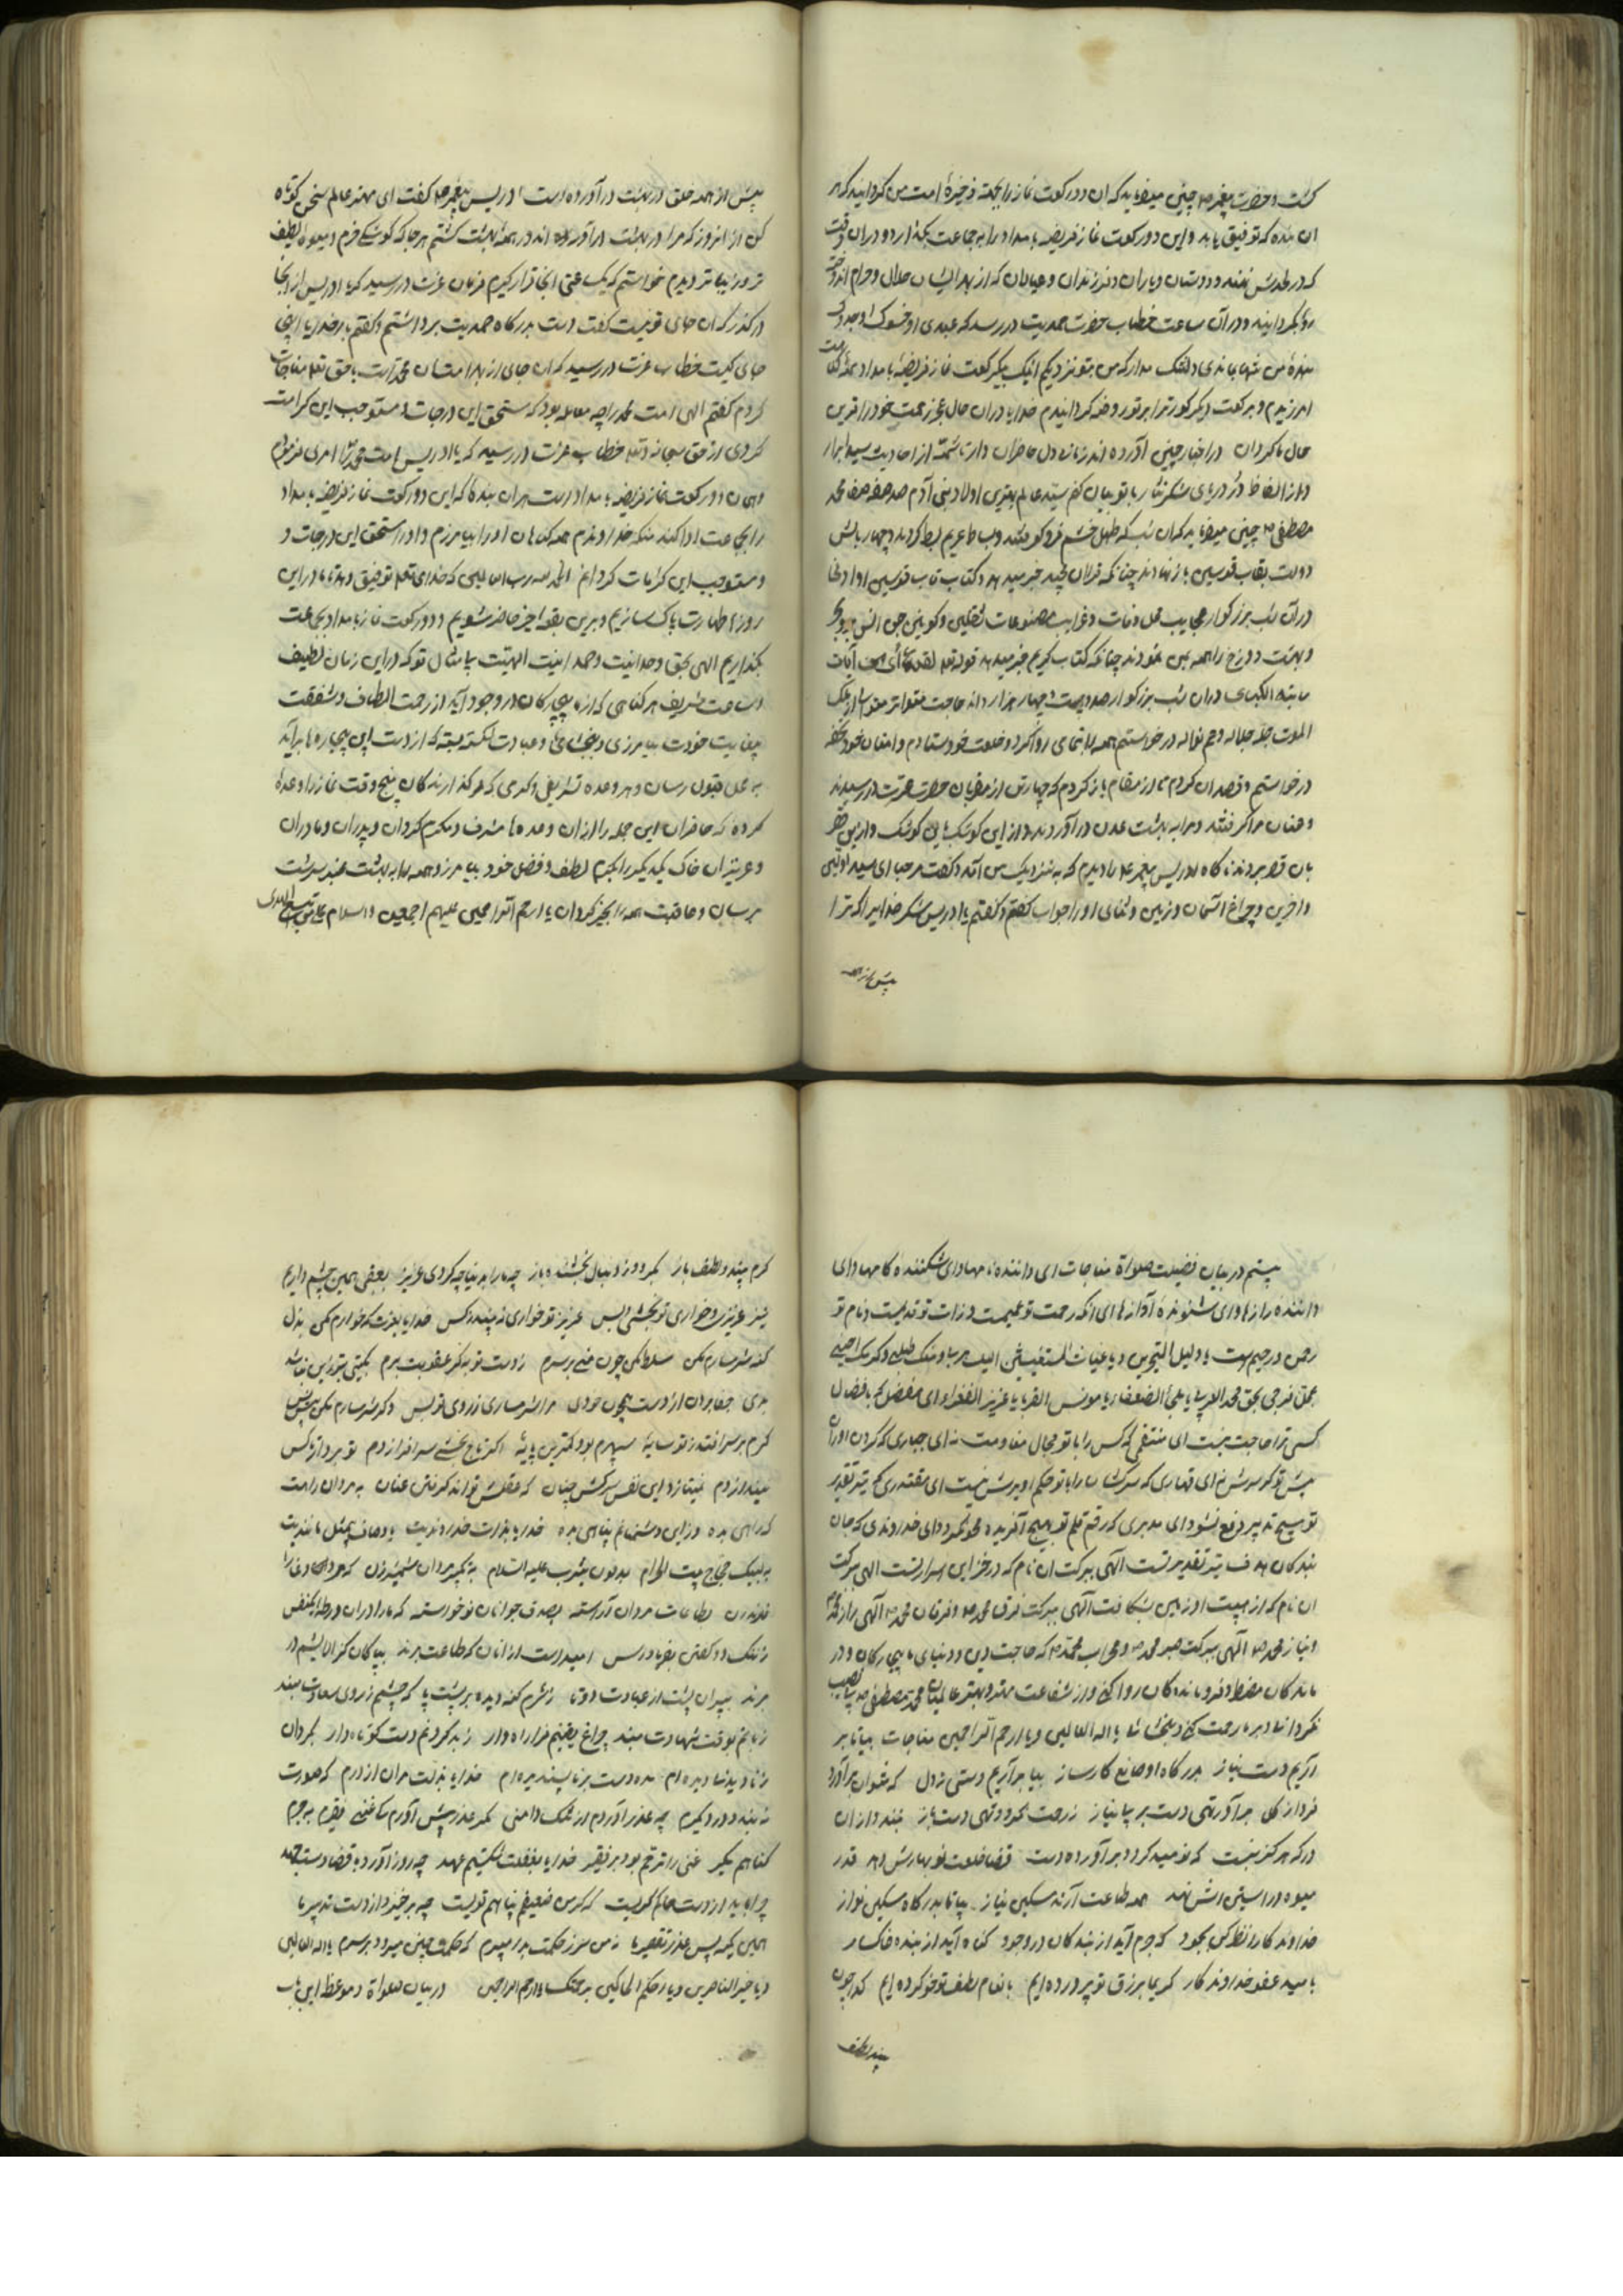 کشت و حضرت پیغمبر صلعم چنین میفرماید که ان دو رکعت نماز را بجهة ذخیرۀ امت من کردانید که هر
ان بنده که توفیق یابد و این دو رکعت نماز فریضه بامداد را به جماعت بکذارد و در ان وقت
که در لحدش نهند و دوستان و یاران و فرزندان و عیالان که از بهر ایشان حلال و حرام
روی بکردانند و در آن ساعت خطاب حضرت صمدیت در رسد که عبدی
بندۀ من تنها ماندی دلتنک مدار که من بتو نزدیکم اینک بیک رکعت نماز فریضه بامداد همه
امرزیدم و برکعت دیکر کور ترا بر تو روضه کردانیدم خدایا در ان حال عجز رحمت خود را قرین
حال ما کردان در اخبار چنین آورده اند زمانی دل حاضران دار تا شمۀ از احادیث سید ابرار
و از الفاظ در دریای شکر نثار با تو بیان کنم سید عالم بهترین اولاد بنی آدم محمد
مصطفی صلعم چنین میفرماید که ان شب که
دولت بقاب قوسین باز نهادند چنانکه قران مجید خبر میدهد و کتاب قاب قوسین او ادنی
در آن شب بزرکوار عجایب و غرایب مصنوعات ثقلین و کونین جن و انس
و بهشت و دوزخ را همه بمن نمودند چنانکه کتاب کریم خبر میدهد قوله تعلی لقد رأی من آیات
ربه الکبری در ان شب بزرکوار صد و بیست و چهار هزار حاجت
جل جلاله و عم نواله در خواستم همه روا کرد و خلعت خود
در خواستم و قصد ان کردم تا از مقام باز کردم که چهار تن از مقربان حضرت عزت در رسیدند
و عنان مرا کرفتند و مرا به بهشت عدن در آوردند و از این کوشک باین کوشک و از این قصر
بان قصر بردند ناکاه ادریس پیغمبر علم را دیدم که به نزدیک من آمد و کفت مرحبا ای سید اولین
و آخرین و چراغ آسمان و زمین و ثنای او را جواب کفتم و کفتم یا ادریس شکر خدایرا که ترا
پیش از همه
پیش از همه خلق در بهشت در آورده است ادریس پیغمبر علم کفت ای مهتر عالم سخن کوتاه
کن از ان روز که مرا در بهشت در آورده اند در همه بهشت کشتم هر جا که کوشکی خرم و میوه لطیف
تر و زیباتر دیدم خواستم که یک ساعتی انجا قرار کیرم فرمان عزت در رسید که یا ادریس از انجا
در کذر که ان جای تو نیست کفت دست بدرکاه صمدیت برداشتم و کفتم بار خدایا این
جای کیست خطاب عزت در رسید که ان جای از بهر امتان محمد است با حق تعلی مناجات
کردم کفتم الهی امت محمد را چه معامله بود که مستحق این درجات و مستوجب این کرامت
کردی از حق سبحانه و تعلی خطاب عزت در رسید که یا ادریس امت محمد را امری فرمودم
و همان دو رکعت نماز فریضه بامداد است هر ان بندۀ که این دو رکعت نماز فریضه بامداد
را بجماعت ادا کند منکه خداوندم همه کناهان او را بیامرزم و او را مستحق این درجات و
و مستوجب این کرامات کردانم الحمد لله رب العالمین که خدای تعلی توفیق دهد تا ما در این
روزها طهارت پاک سازیم و برین بقعه اخیر حاضر شویم و دو رکعت نماز بامداد بجماعت
بکذاریم الهی بحق وحدانیت و صمدانیت الهیت بی مثال تو که در این زمان لطیف
و ساعت شریف هر کناهی که از ما بیچارکان در وجود آید از رحمت الطاف و شفقت
بی غایت خودت بیامرزی و ببخشای و عبادت شکسته بسته که از دست این بیچاره ها برآید
به محل قبول رسان و هر وعده تشریفی و کرمی که مر کذارندکان پنج وقت نماز را وعده
کرده که حاضران این جمله را از ان وعده ها مشرف و مکرم کردان و پدران و مادران
و عزیزان خاک یکدیکر را بکرم لطف و فضل خود بیامرز و همه را به بهشت عنبر سرشت
برسان و عاقبت همه بخیر کردان یا ارحم الراحمین علیهم اجمعین و السلام علی من اتبع الهدی
بیستم در بیان فضیلت صلواة مناجات ای داننده و ای شکننده کامها و ای
داننده رازها و ای شنونده آوازها ای انکه رحمت تو عمیمست و ذات تو قدیمست و نام تو
رحمن و رحیم است یا دلیل المتحیرین و یا غیاث المستغیثین
بحق محمد العربی یا ملجأ الضعفاء یا مونس الغربا یا عزیز الفقراء ای مفضل
کس ترا حاجت نیست ای منتقمی که کس را با تو مجال مقاومت نه ای جباری که کردن اوران
پیش تو ای قهاری که سرکشان را با تو حکم ای مقتدری که تیر تقدیر
تو بهیچ تدبیر دفع نشود ای مدبری که رقم قلم تو بهیچ آفریده محو نکردد ای خداوندی که جان
بندکان هدف تیر تقدیر تست الهی ببرکت ان نام که در خزاین اسرار تست الهی ببرکت
ان نام که از هیبت او زمین بشکافت الهی ببرکت فرق محمد و فرقان محمد الهی براز محمد
و نیاز محمد الهی ببرکت صبر محمد و محراب محمد که حاجت دین و دنیای ما بیچارکان و در
ماندکان مضطر و فرو ماندکان روا کنی و از شفاعت مهتر و بهتر عالمیان محمد مصطفی بی نصیب
نکردانی و بر ما رحمت کنی و ببخشای یا اله العالمین و یا ارحم الراحمین مناجات بیا تا بر
آریم دست نیاز بدرکاه او صانع کارساز بیا تا برآریم دستی ز دل که نتوان برآورد
فردا ز کل برآور تهی دست بر پا نیاز ز رحمت نکردد تهی دست باز مپندار از ان
در که هرکز نبست که نومید کردد برآورده دست قضا خلعت نو بهارش دهد قدر
میوه در آستین اش نهد همه طاعت آرند مسکین نیاز بیا تا بدرکاه مسکین نواز
خداوندکارا نظر کن بجود که جرم آید از بندکان در وجود کناه آید از بنده خاکسار
بامید عفو خداوندکار کریما برزق تو پرورده ایم بانعام لطف تو خو کرده ایم کدا چون
بیند لطف
کرم بیند و لطف باز نکردد ز دنبال بخشنده باز چه ما را به دنیا چه کردی عزیز بعقبی همین چشم داریم
نیز عزیزی و خواری تو بخشی و بس عزیز تو خواری نه بیند ز کس خدایا بعزت که خوارم مکن بذل
کنه شرمسارم مکن مسلط مکن چون منی بر سرم ز دست تو به کر عقوبت برم بکیتی بتر زین نباشد
بدی جفا بردن از دست همچون خودی مرا شرمساری ز روی تو بس دکر شرمسارم مکن پیش کس
کرم بر سر افتد ز تو سایۀ سپهرم بود کمترین پایۀ اکر تاج بخشی سر افرازدم تو بردار تا کس
نیندازدم نمی تازد این نفس سرکش چنان که عقلش تواند کرفتن عنان به مردان راهت
که راهی بده وز این دشمنانم پناهی بده خدایا بذات خداوندیت باوصاف بی مثل مانندیت
به لبیک حجاج بیت الحرام بمدفون یثرب علیه السلام به تکبیر مردان شمشیر زن که مرد وغا را
شمارند زن بطاعات مردان آراسته بصدق جوانان نوخاسته که ما را در ان ورطۀ یکنفس
ز ننک دو کفتن بفریاد رس امید است از انان که طاعت برند بی کان
به پیران پشت از عبادت دوتا ز شرم کنه دیده بر پشت پا که چشمم ز روی سعادت مبند
زبانم بوقت شهادت مبند چراغ یقینم فرا راه دار ز بد کردنم دست کوتاه دار بکردان
ز نادیدنی دیده ام مده دست بر ناپسندیده ام خدایا بذلت مران از درم که صورت
نه بندد در دیکرم چه عذر آرم از ننک دامنی مکر عذر پیش آورم کای غنی فقیرم به جرم
کناهم مکیر غنی را ترحم بود بر فقیر خدایا بغفلت شکستیم عهد چه زور آورد با قضا دست جهد
چرا باید از دست حالم کریست که کر من ضعیفم پناهم تویست چه برخیزد از دست تدبیر ما
همین نکته بس عذر تقصیر ما نه من سر ز حکمت بدر میبرم که حکمت چنین میرود بر سرم یا اله العالمین
و یا خیر الناصرین و یا احکم الحاکمین برحمتک یا ارحم الراحمین در بیان صلواة و موعظ این باب